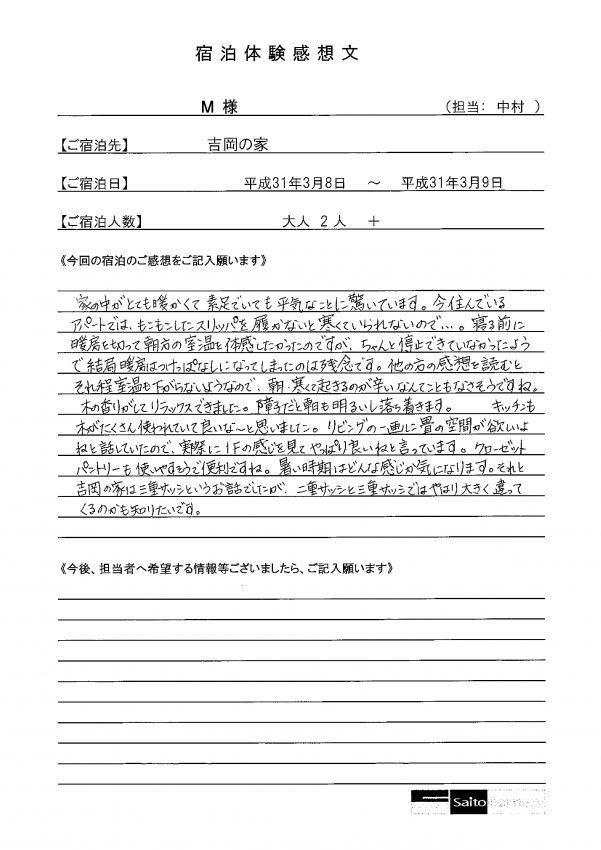 宿泊体験感想文
M 様 (担当: 中村 )
【ご宿泊先】 吉岡の家
【ご宿泊日】 平成31年3月8日 ～ 平成31年3月9日
【ご宿泊人数】 大人 2人 +
《今回の宿泊のご感想をご記入願います》
家の中がとても暖かくて素足でいても平気なことに驚いています。今住んでいる
アパートでは、もこもこしたスリッパを履かないと寒くていられないので…。寝る前に
暖房を切って朝方の室温を体感したかったのですが、ちゃんと停止できていなかったよう
で結局暖房はつけっぱなしになってしまったのは残念です。他の方の感想を読むと
それ程室温も下がらないようなので、朝、寒くて起きるのが辛いなんてこともなさそうですね。
木の香りがしてリラックスできました。障子だと朝も明るいし落ち着きます。 キッチンも
木がたくさん使われていて良いな〜と思いました。リビングの一画に畳の空間が欲いよ
ねと話していたので、実際に1Fの感じを見てやっぱり良いねと言っています。クローゼット
パントリーも使いやすそうで便利ですね。暑い時期はどんな感じか気になります。それと
吉岡の家は三重サッシというお話でしたが、二重サッシと三重サッシではやはり大きく違って
くるのかも知りたいです。
《今後、担当者へ希望する情報等ございましたら、ご記入願います》
Saito